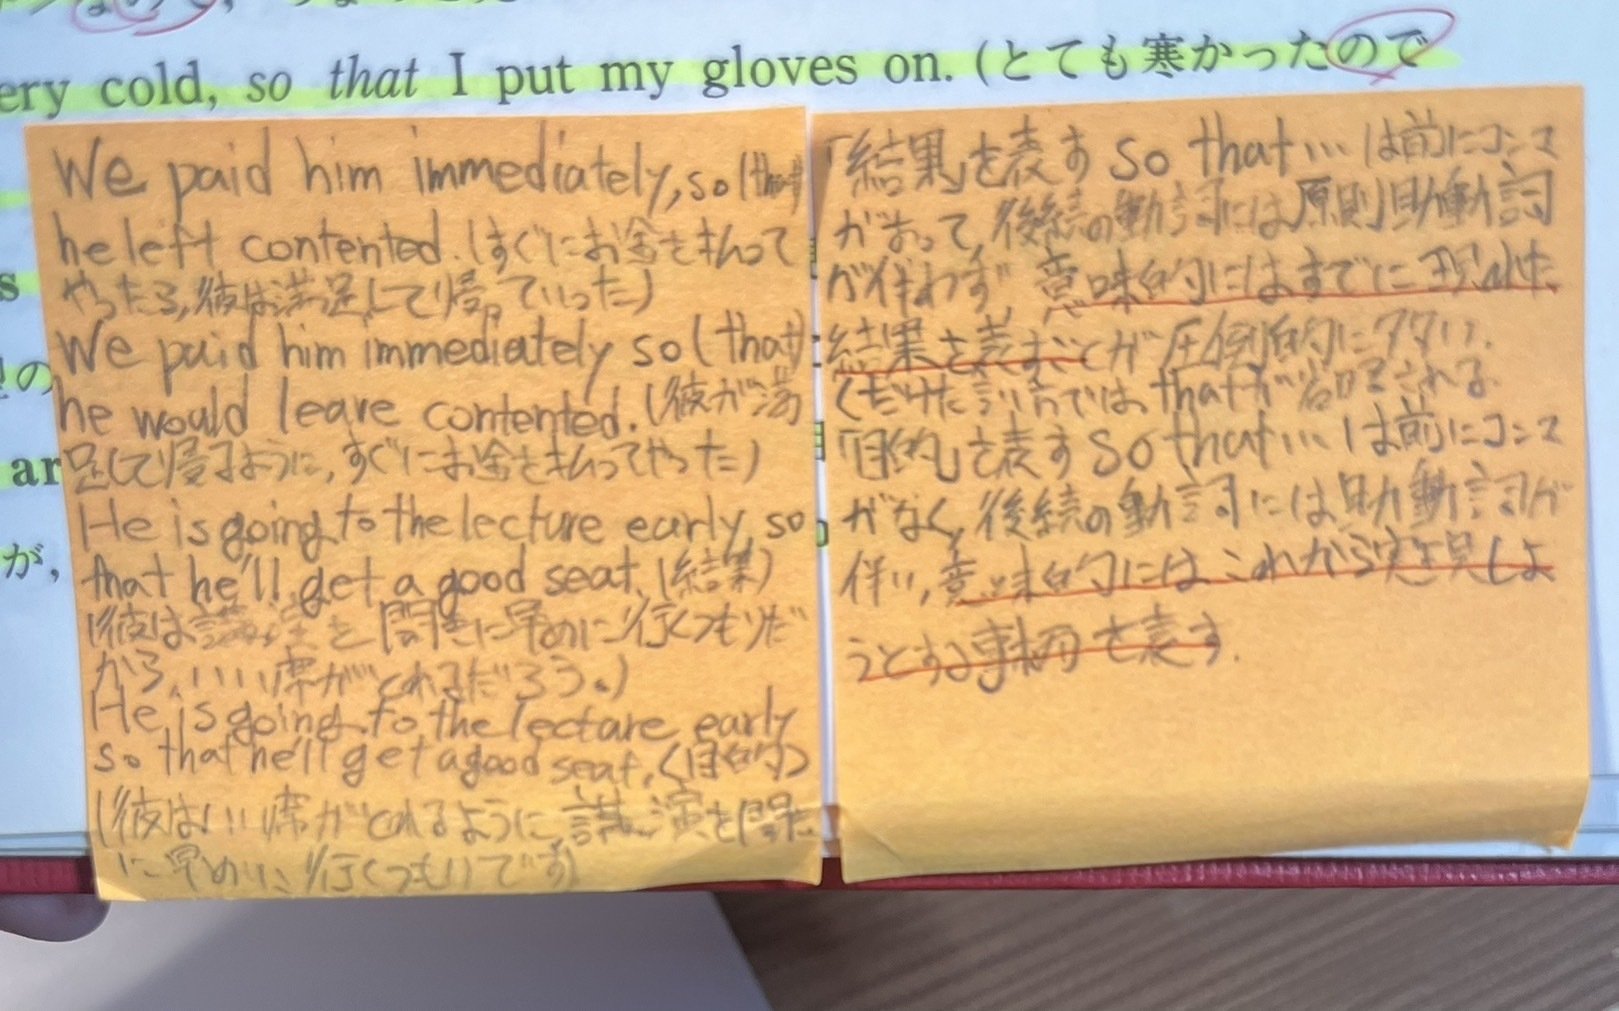 ery cold, so that I put my gloves on. (とても寒かったので
We paid him immediately, so (that)
he left contented. (すぐにお金を払って
やったら, 彼は満足して帰っていった)
We paid him immediately so (that)
he would leave contented. (彼が満
足して帰るように, すぐにお金を払ってやった)
He is going to the lecture early, so
that he'll get a good seat. (結果)
(彼は講演を聞きに早めに行くつもりだ
から、いい席がとれるだろう。)
He is going to the lecture early
so that he'll get a good seat. (目的)
(彼はいい席がとれるように講演を聞き
に早めに行くつもりです)
「結果」を表す so that … は前にコンマ
があって, 後続の動詞には原則助動詞
が伴わず, 意味的にはすでに現れた
結果を表すことが圧倒的に多い.
くだけた言い方では, thatが省略される.
「目的」を表す so that … は前にコンマ
がなく, 後続の動詞には助動詞が
伴い, 意味的にはこれから実現しよ
うとする事柄を表す.
s
の
ar
が,